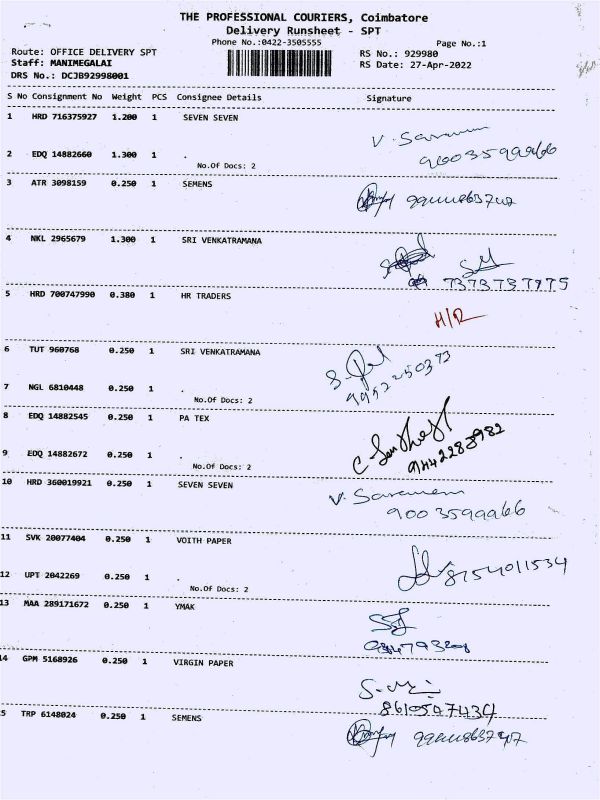 THE PROFESSIONAL COURIERS, Coimbatore
Delivery Runsheet - SPT
Phone No.:0422-3505555
Page No.:1
Route: OFFICE DELIVERY SPT
RS No.: 929980
Staff: MANIMEGALAI
RS Date: 27-Apr-2022
DRS No.: DCJB92998001
S No Consignment No Weight PCS Consignee Details Signature
1 HRD 716375927 1.200 1 SEVEN SEVEN
V. Saravanan
2 EDQ 14882660 1.300 1 .
9003599966
No.Of Docs: 2
3 ATR 3098159 0.250 1 SEMENS
4 NKL 2965679 1.300 1 SRI VENKATRAMANA
7373737775
5 HRD 700747990 0.380 1 HR TRADERS
H/R
6 TUT 960768 0.250 1 SRI VENKATRAMANA
9952250373
7 NGL 6810448 0.250 1 .
No.Of Docs: 2
8 EDQ 14882545 0.250 1 PA TEX
9442283982
9 EDQ 14882672 0.250 1 .
No.Of Docs: 2
10 HRD 360019921 0.250 1 SEVEN SEVEN
V. Saravanan
9003599966
11 SVK 20077404 0.250 1 VOITH PAPER
8754011534
12 UPT 2042269 0.250 1 .
No.Of Docs: 2
13 MAA 289171672 0.250 1 YMAK
14 GPM 5168926 0.250 1 VIRGIN PAPER
8610547434
5 TRP 6148024 0.250 1 SEMENS